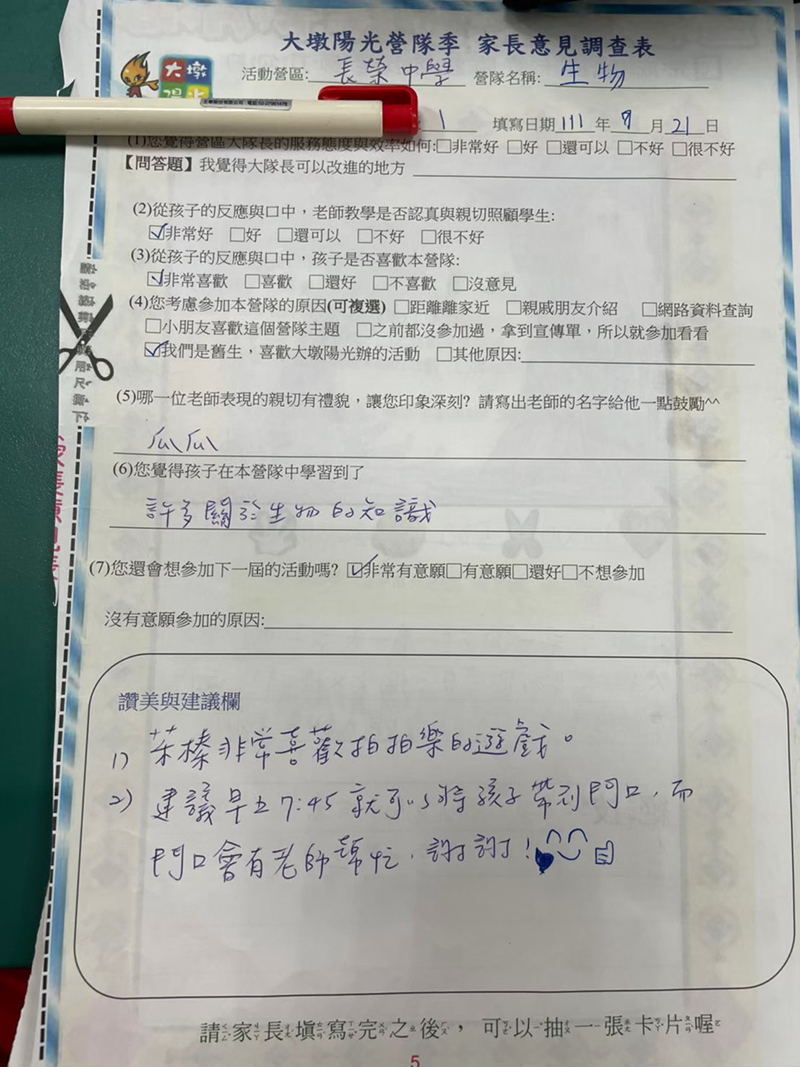 大墩陽光營隊季 家長意見調查表
大墩
活動營區: 長榮中學 營隊名稱: 生物
1 填寫日期 111 年 月 21 日
(1)您覺得營區大隊長的服務態度與效率如何:□非常好 □好 □還可以 □不好 □很不好
【問答題】我覺得大隊長可以改進的地方
(2)從孩子的反應與口中，老師教學是否認真與親切照顧學生:
☑非常好 □好 □還可以 □不好 □很不好
(3)從孩子的反應與口中，孩子是否喜歡本營隊:
☑非常喜歡 □喜歡 □還好 □不喜歡 □沒意見
(4)您考慮參加本營隊的原因(可複選) □距離離家近 □親戚朋友介紹 □網路資料查詢
□小朋友喜歡這個營隊主題 □之前都沒參加過，拿到宣傳單，所以就參加看看
☑我們是舊生，喜歡大墩陽光辦的活動 □其他原因:
(5)哪一位老師表現的親切有禮貌，讓您印象深刻? 請寫出老師的名字給他一點鼓勵^^
瓜瓜
(6)您覺得孩子在本營隊中學習到了
許多關於生物的知識
(7)您還會想參加下一屆的活動嗎? ☑非常有意願□有意願□還好□不想參加
沒有意願參加的原因:
讚美與建議欄
1) 茉榛非常喜歡拍拍樂的遊戲。
2) 建議早上7:45就可以將孩子帶到門口，而
門口會有老師幫忙，謝謝!
請家長填寫完之後，可以抽一張卡片喔
5